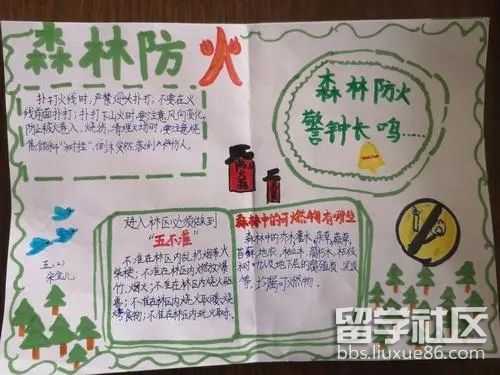 森林防火
扑打火线时,严禁迎火扑打,不要在火
线前面扑打;扑打下山火时,要注意风向变化,
防止被火卷入,烧伤,清理火场时,要注意烧
焦倾斜"树挂",倒木突然落倒伤人。
森林防火
警钟长鸣……
防火瓶
进入林区必须做到
"五不准"
不准在林区内乱扔烟蒂火
柴梗;不准在林区内燃放爆
竹、烟火;不准在林区内烧火驱
兽;不准在林区内烧火取暖、烧
烤食物;不准在林区内玩火取乐。
森林中的可燃物有哪些
森林中的乔木灌木、杂草、蕨草、
苔藓、地衣、枯立木、腐朽木、枯枝
树叶以及地下层的腐殖质、泥炭
等,均属可燃物。
五(2)
留学社区
bbs.liuxue86.com